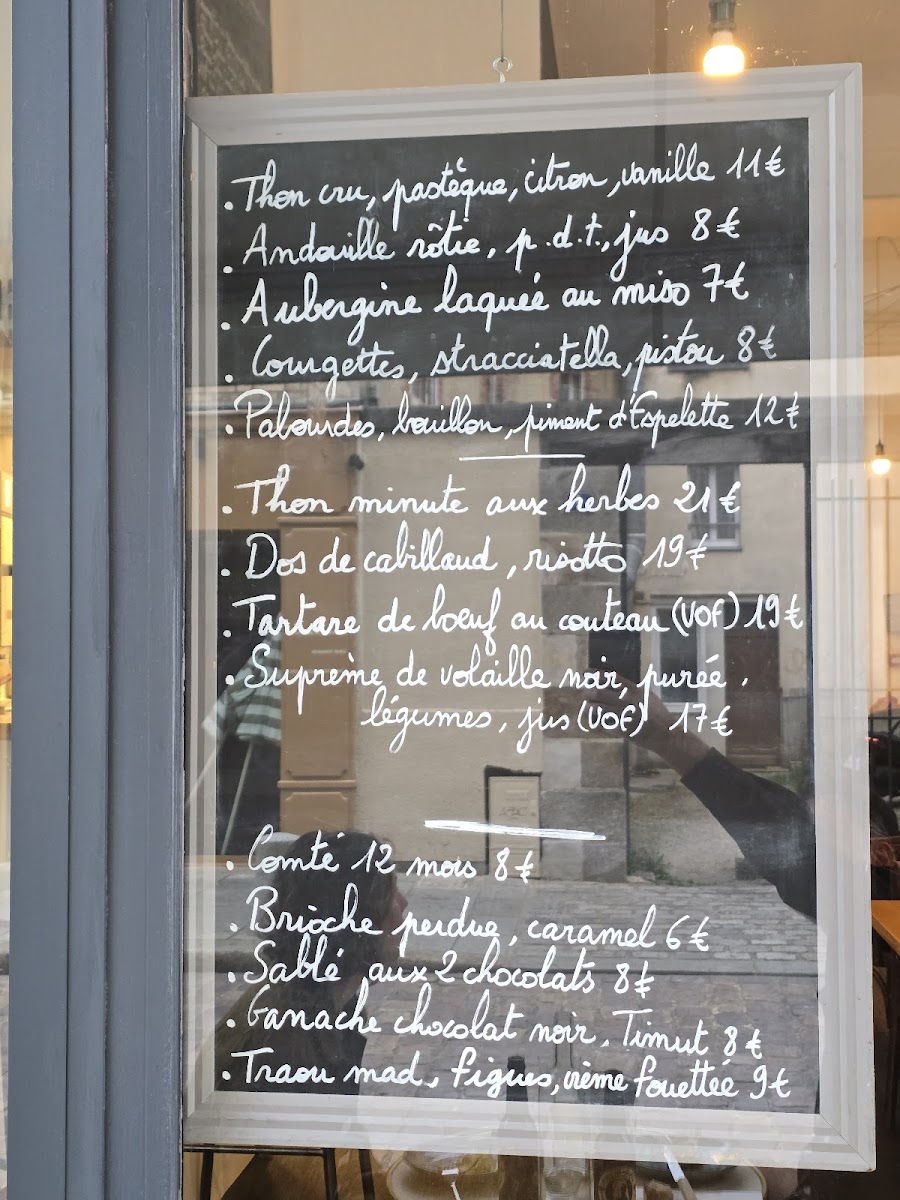 . Thon cru, pastèque, citron, vanille 11€
. Andouille rôtie, p.d.t., jus 8€
. Aubergine laquée au miso 7€
. Courgettes, stracciatella, pistou 8€
. Palourdes, bouillon, piment d'Espelette 12€
. Thon minute aux herbes 21€
. Dos de cabillaud, risotto 19€
. Tartare de bœuf au couteau (VOF) 19€
. Suprême de volaille noir, purée,
légumes, jus (VOF) 17€
. Comté 12 mois 8€
. Brioche perdue, caramel 6€
. Sablé aux 2 chocolats 8€
. Ganache chocolat noir, Timut 8€
. Traou mad, figues, crème fouettée 9€